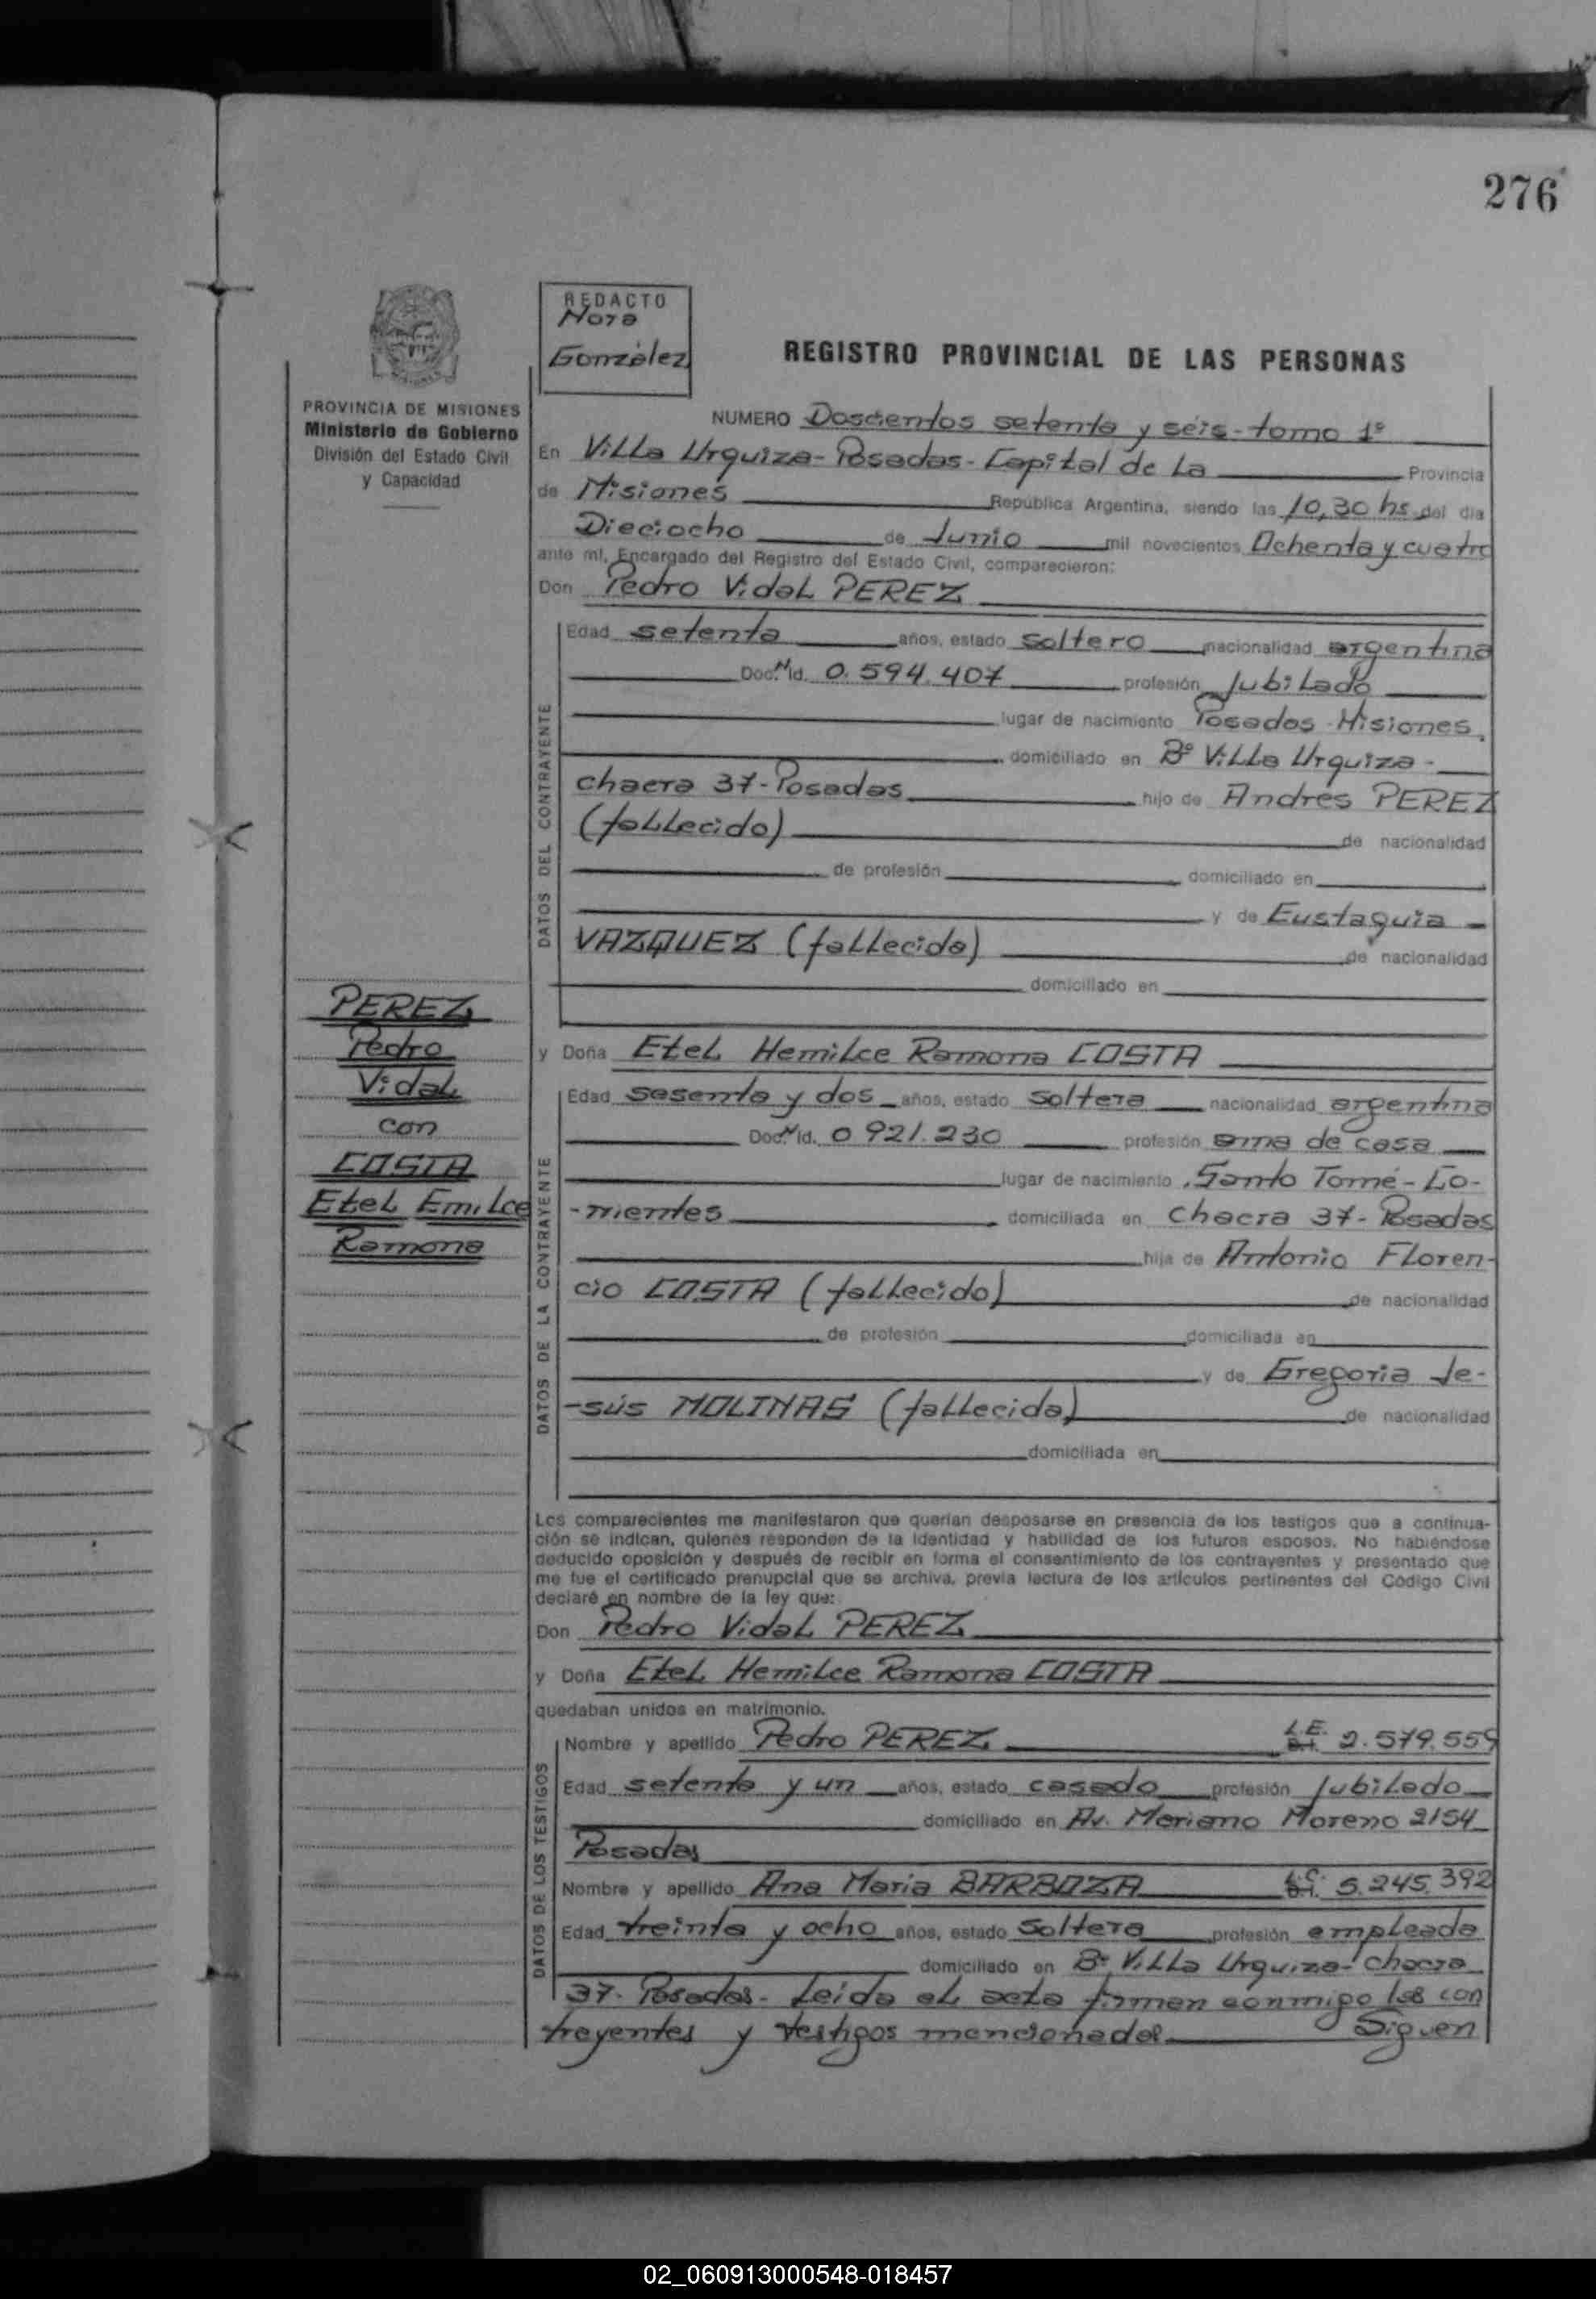 276
REDACTO
Nora
González
REGISTRO PROVINCIAL DE LAS PERSONAS
PROVINCIA DE MISIONES
Ministerio de Gobierno
División del Estado Civil
y Capacidad
NUMERO Doscientos setenta y séis - tomo 1º
En Villa Urquiza - Posadas - Capital de La Provincia
de Misiones República Argentina, siendo las 10,30 hs del día
Dieciocho de Junio mil novecientos Ochenta y cuatro
ante mí, Encargado del Registro del Estado Civil, comparecieron:
Don Pedro Vidal PEREZ
DATOS DEL CONTRAYENTE
Edad setenta años, estado soltero nacionalidad argentina
Doc. Id. 0.594.407 profesión Jubilado
lugar de nacimiento Posadas - Misiones
domiciliado en Bº Villa Urquiza -
chacra 37 - Posadas hijo de Andrés PEREZ
(fallecido) de nacionalidad
de profesión domiciliado en
y de Eustaquia -
VAZQUEZ (fallecida) de nacionalidad
domiciliado en
PEREZ
Pedro
Vidal
con
COSTA
Etel Emilce
Ramona
y Doña Etel Hemilce Ramona COSTA
DATOS DE LA CONTRAYENTE
Edad sesenta y dos años, estado soltera nacionalidad argentina
Doc. Id. 0 921.230 profesión ama de casa
lugar de nacimiento Santo Tomé - Co-
-rrientes domiciliada en chacra 37 - Posadas
hija de Antonio Floren-
cio COSTA (fallecido) de nacionalidad
de profesión domiciliada en
y de Gregoria Je-
-sús MOLINAS (fallecida) de nacionalidad
domiciliada en
Los comparecientes me manifestaron que querían desposarse en presencia de los testigos que a continua-
ción se indican, quienes responden de la identidad y habilidad de los futuros esposos. No habiéndose
deducido oposición y después de recibir en forma el consentimiento de los contrayentes y presentado que
me fue el certificado prenupcial que se archiva, previa lectura de los artículos pertinentes del Código Civil
declaré en nombre de la ley que:
Don Pedro Vidal PEREZ
y Doña Etel Hemilce Ramona COSTA
quedaban unidos en matrimonio.
DATOS DE LOS TESTIGOS
Nombre y apellido Pedro PEREZ L.E. 2.579.559
Edad setenta y un años, estado casado profesión Jubilado
domiciliado en Av. Mariano Moreno 2154
Posadas
Nombre y apellido Ana Maria BARBOZA L.C. 5.245.392
Edad treinta y ocho años, estado soltera profesión empleada
domiciliado en Bº Villa Urquiza - chacra
37 - Posadas - Leída el acta firman conmigo los con
trayentes y testigos mencionados Siguen
02_060913000548-018457